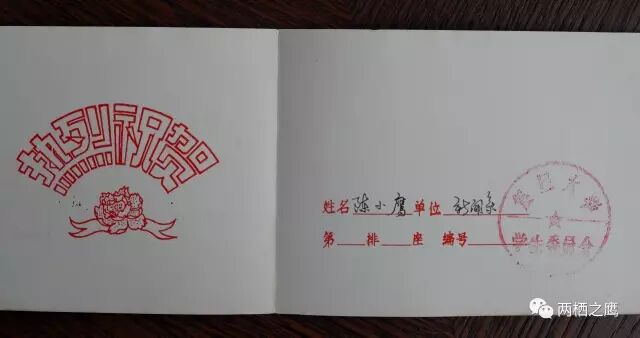 热烈祝贺
姓名 陈小鹰 单位 新闻系
第 排 座 编号
复旦大学
学生委员会
两栖之鹰